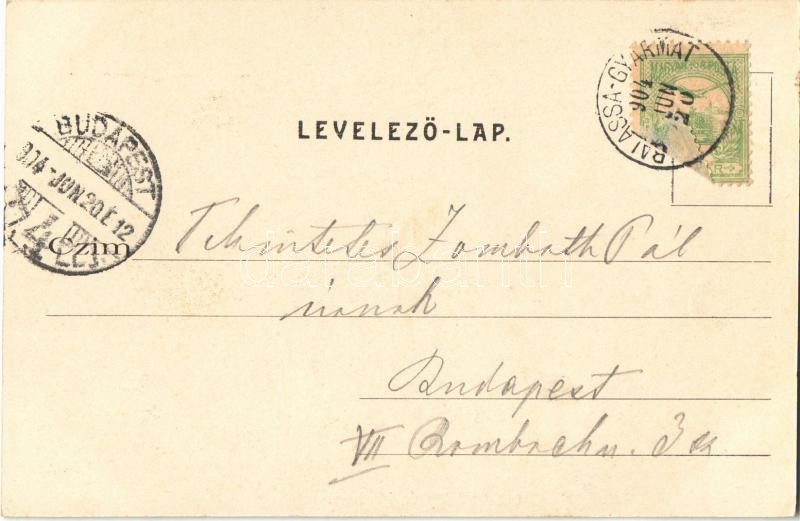 BALASSA-GYARMAT
904
JUN
20
MAGYAR KIR. POSTA
LEVELEZŐ-LAP.
BUDAPEST
904 JUN 20 É 12
Czim
Tekintetes Zombath Pál
úrnak
Budapest
VII Rombach u. 3
darabanth